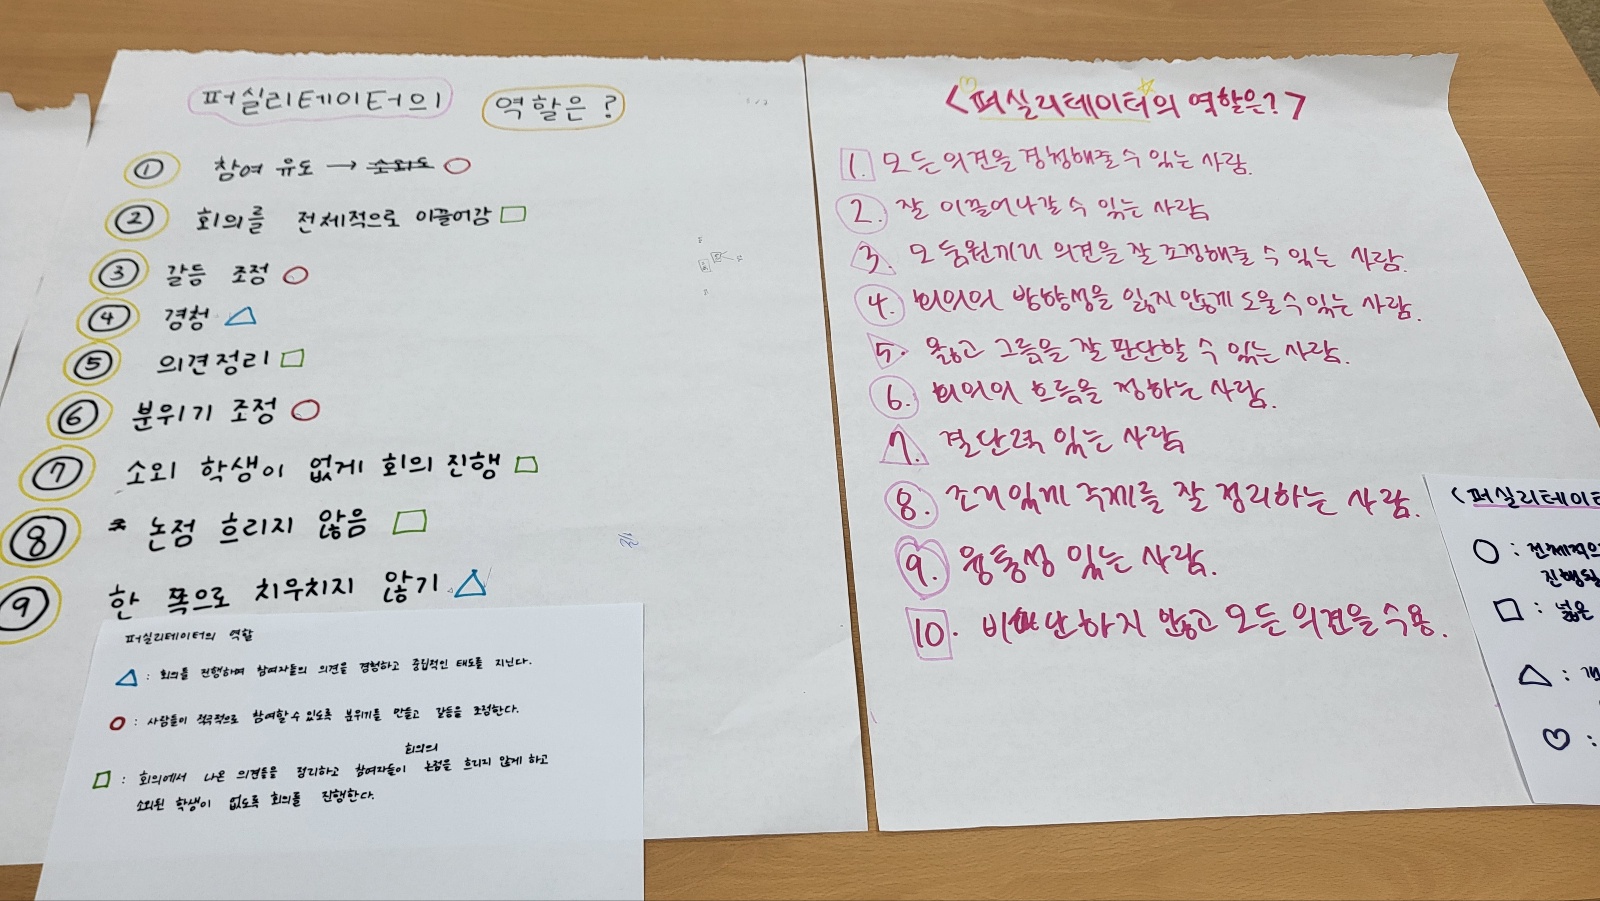 퍼실리테이터의 역할은?
① 참여 유도 → 소외도
② 회의를 전체적으로 이끌어감
③ 갈등 조정
④ 경청
⑤ 의견정리
⑥ 분위기 조정
⑦ 소외 학생이 없게 회의 진행
⑧ 논점 흐리지 않음
⑨ 한 쪽으로 치우치지 않기
퍼실리테이터의 역할
: 회의를 진행하며 참여자들의 의견을 경청하고 중립적인 태도를 지닌다.
: 사람들이 적극적으로 참여할 수 있도록 분위기를 만들고 갈등을 조정한다.
회의의
: 회의에서 나온 의견들을 정리하고 참여자들이 논점을 흐리지 않게 하고
소외된 학생이 없도록 회의를 진행한다.
<퍼실리테이터의 역할은?>
1. 모든 의견을 경청해줄 수 있는 사람.
2. 잘 이끌어나갈 수 있는 사람
3. 모둠원끼리 의견을 잘 조정해줄 수 있는 사람.
4. 회의의 방향성을 잃지 않게 도울 수 있는 사람.
5. 옳고 그름을 잘 판단할 수 있는 사람.
6. 회의의 흐름을 정하는 사람.
7. 결단력 있는 사람
8. 조리있게 주제를 잘 정리하는 사람.
9. 융통성 있는 사람.
10. 비판단하지 않고 모든 의견을 수용.
<퍼실리테이터
: 전체적으
진행될
: 넓은
: 개
: